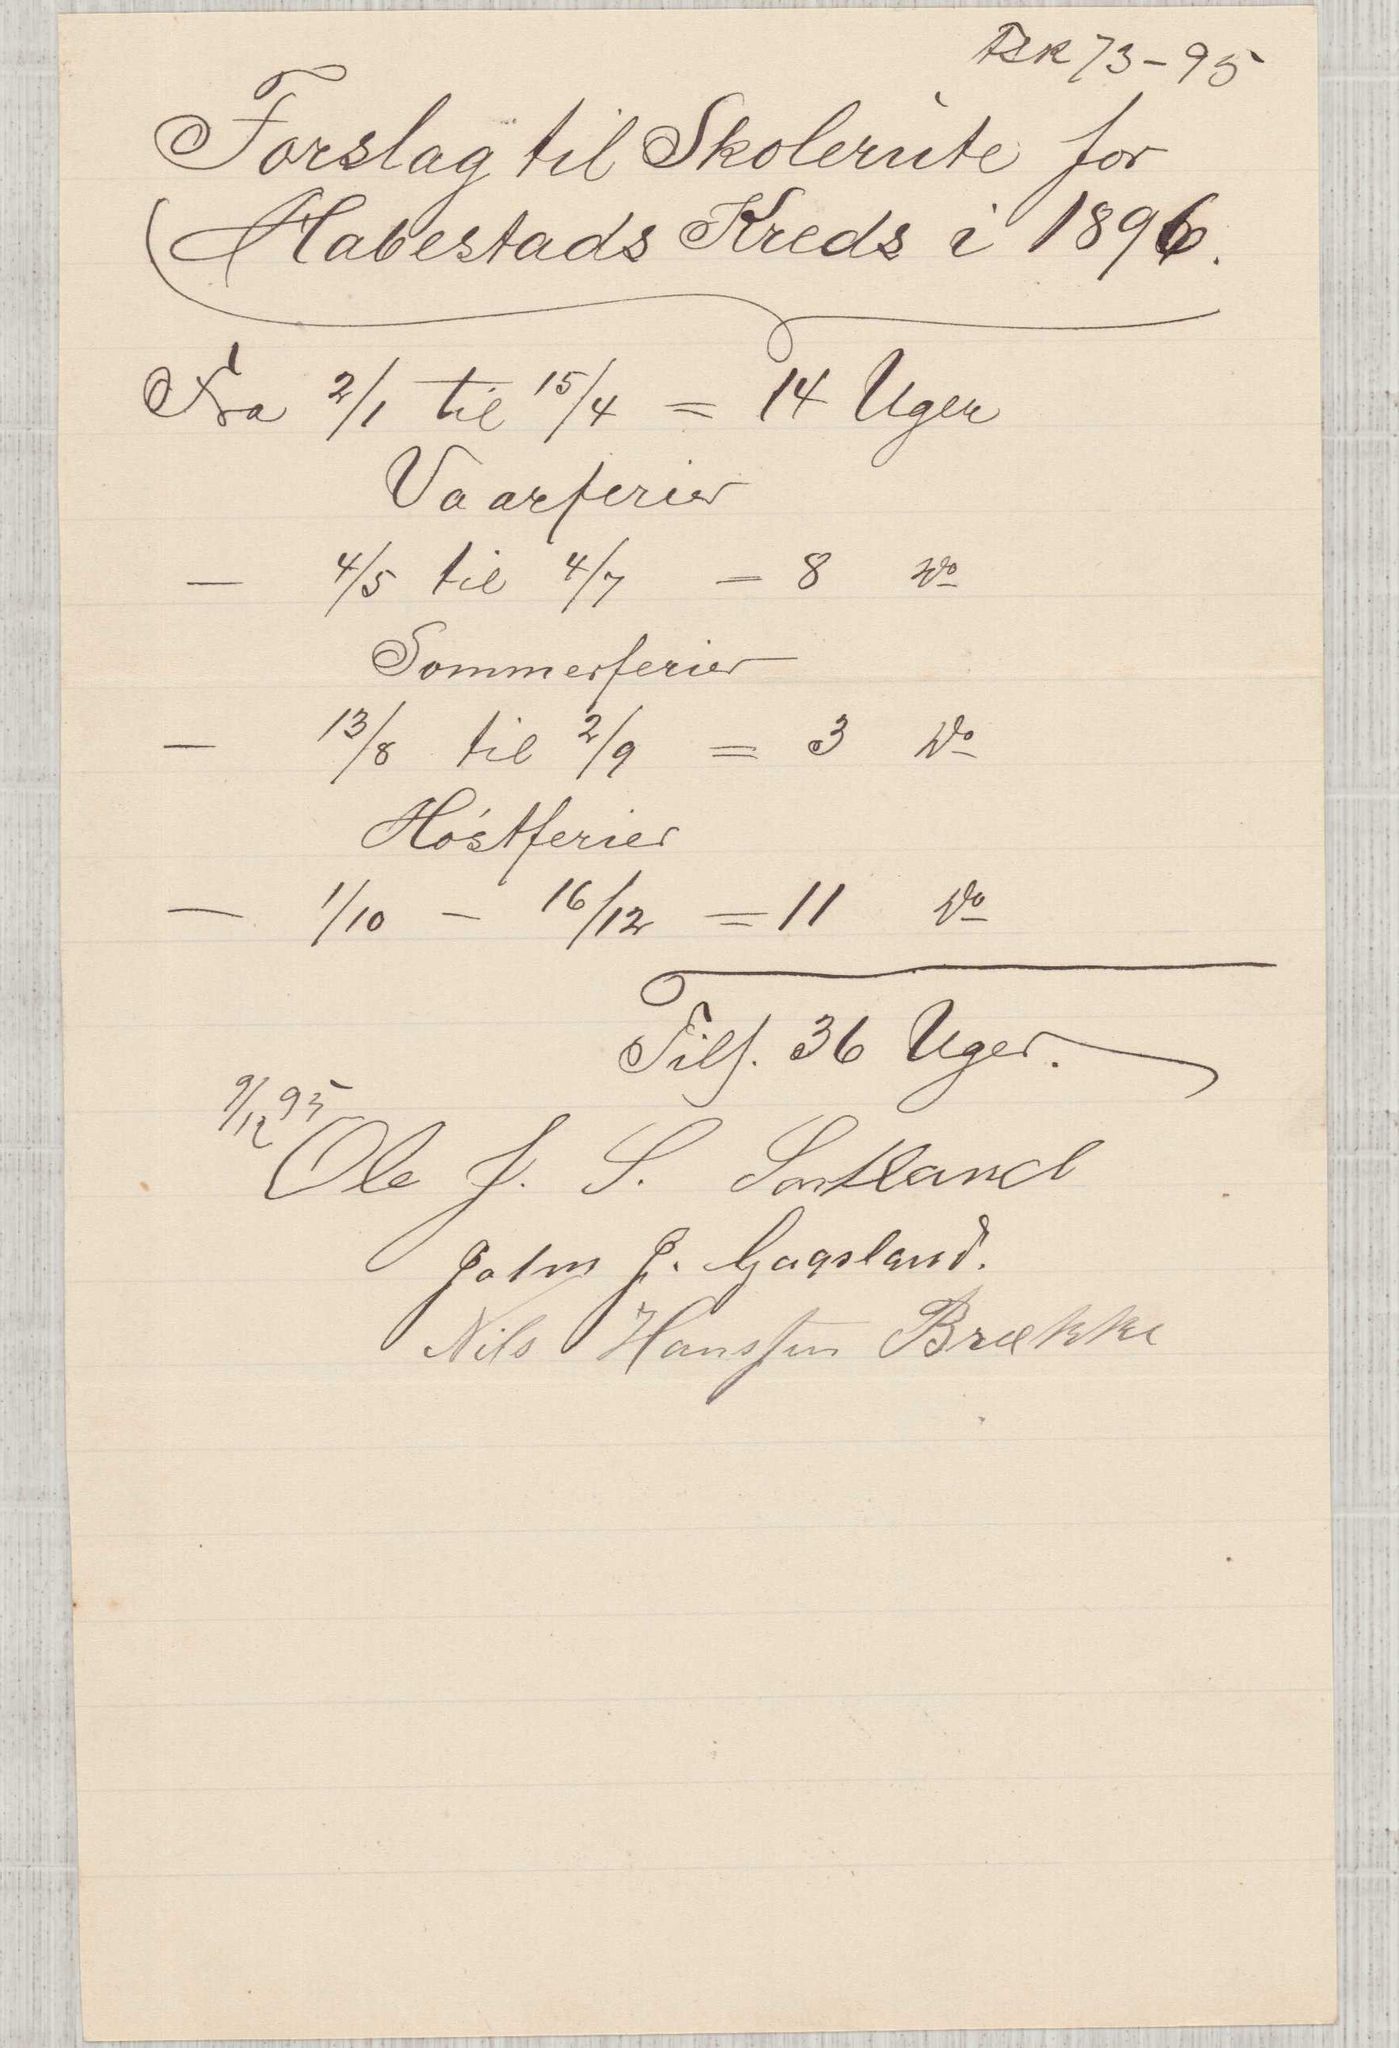 73-95
Forslag til Skolerute for
Habestads Kreds i 1896.
Fra 2/1 til 15/4 = 14 Uger
Vaarferier
— 4/5 til 4/7 = 8 do
Sommerferier
— 13/8 til 2/9 = 3 do
Höstferier
— 1/10 - 16/12 = 11 do
Tils. 36 Uger.
9/12 95
Ole J. S. Sortland
J. Gagsland.
Nils Hanssen Brække